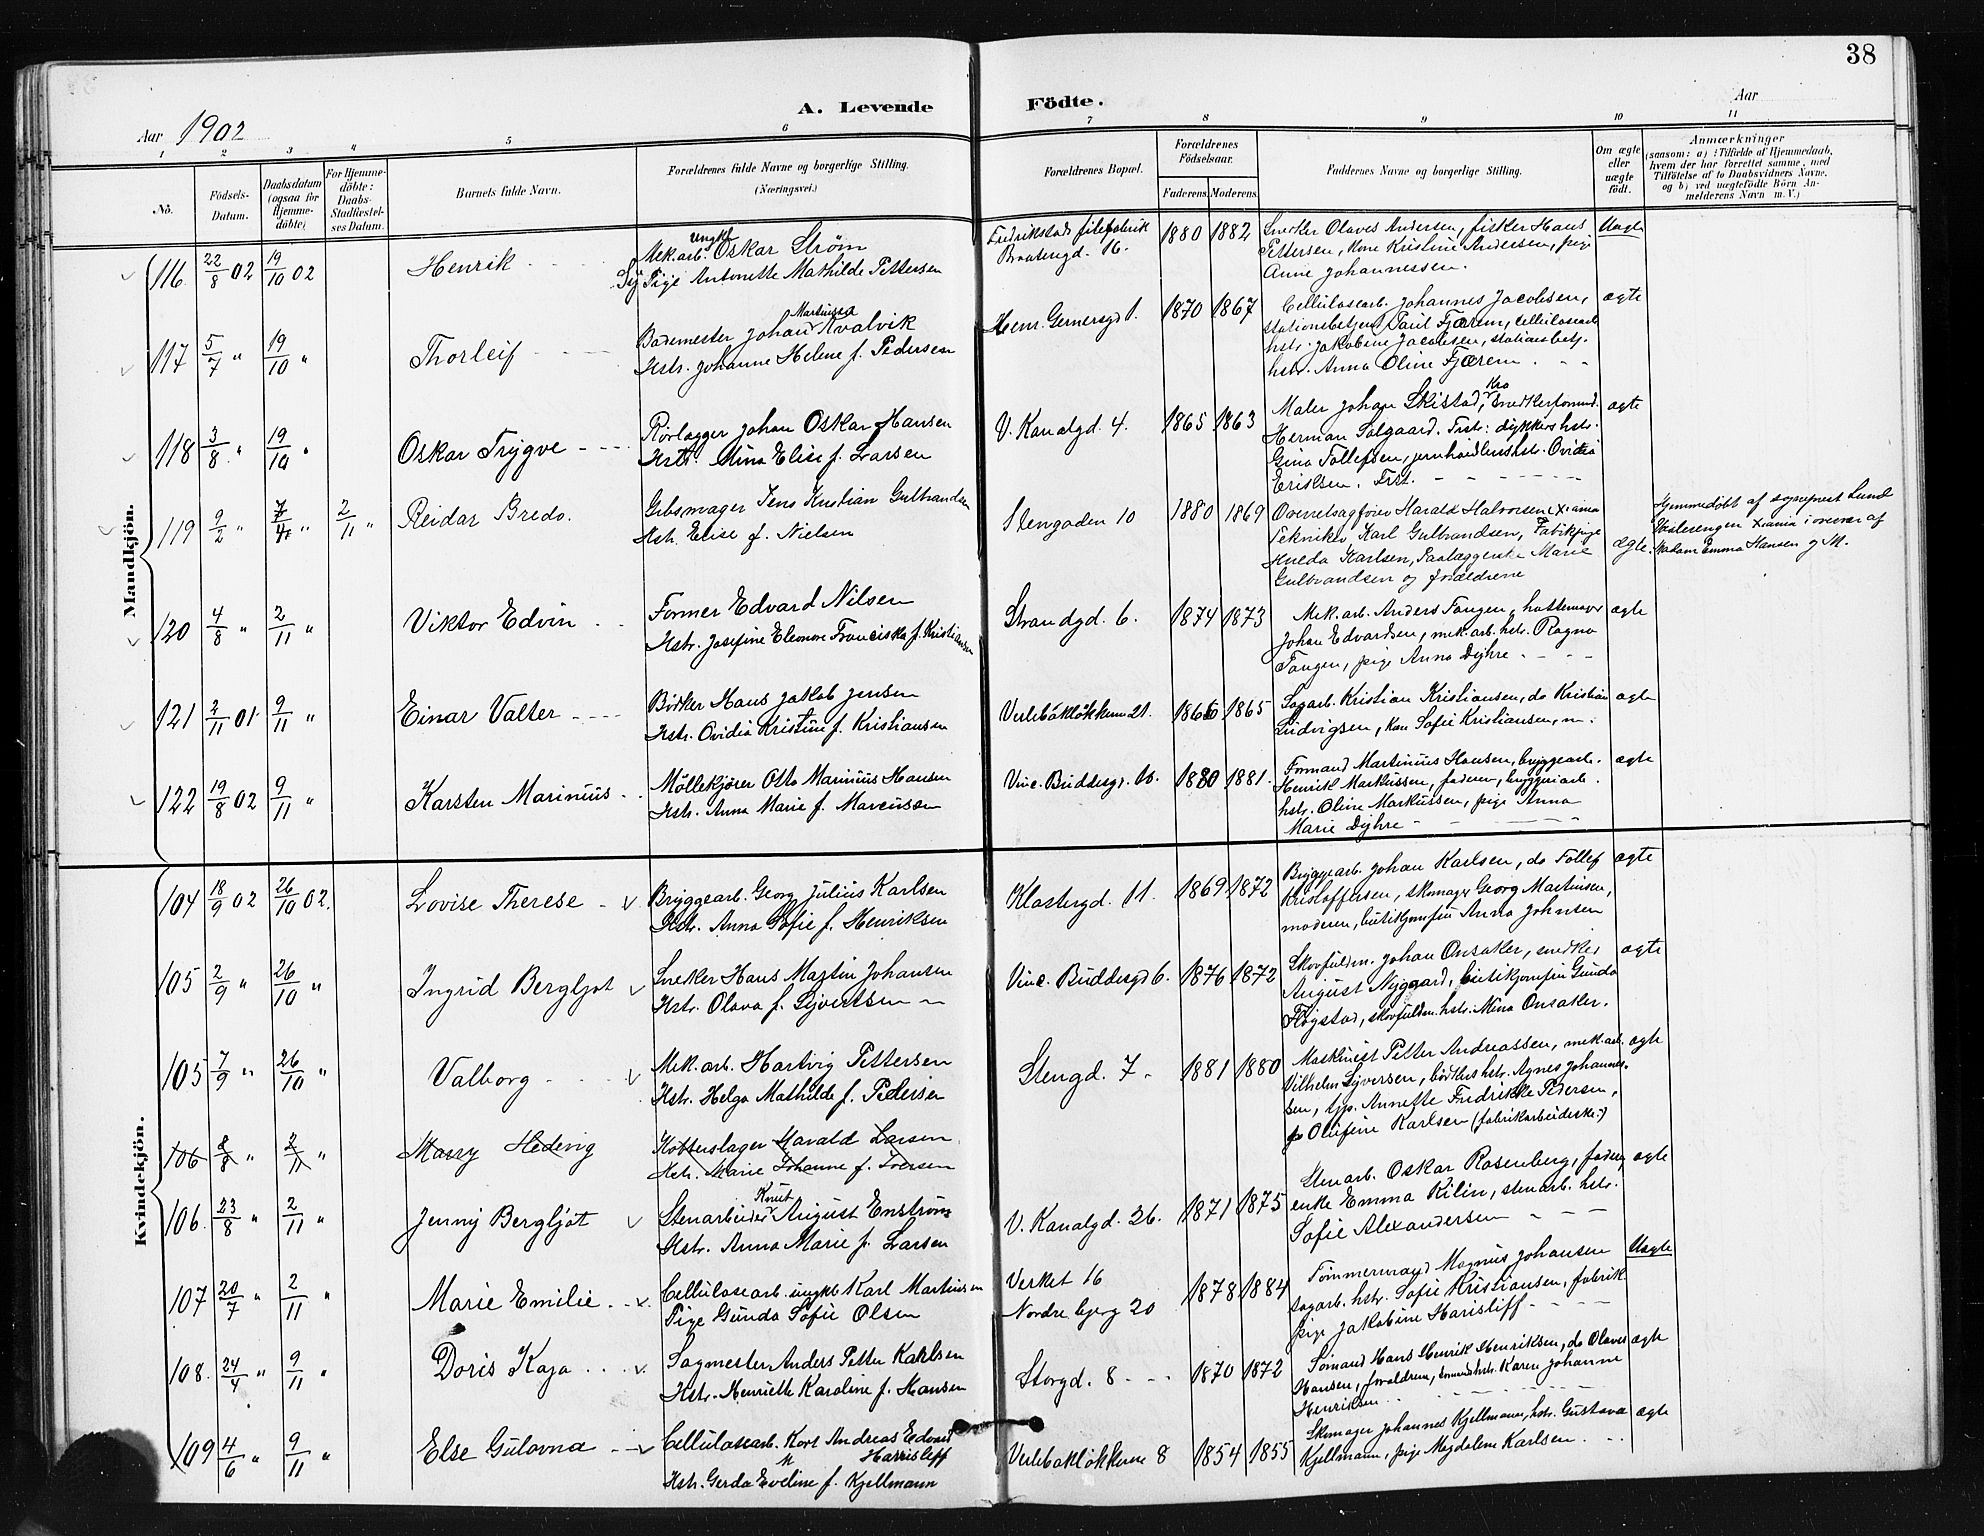 38
A. Levende Födte.
Aar 1902
Aar
1 2 3 4 5 6 7 8 9 10 11
No.
Födsels-Datum.
Daabsdatum (ogsaa for Hjemmedöbte)
For Hjemmedöbte: Daabs-Stadfæstelses Datum.
Barnets fulde Navn.
Forældrenes fulde Navne og borgerlige Stilling.
(Næringsvei.)
Forældrenes Bopæl.
Forældrenes Födselsaar.
Faderens Moderens
Faddernes Navne og borgerlige Stilling.
Om ægte eller uægte födt.
Anmærkninger
(saasom: a) i Tilfælde af Hjemmedaab, hvem der har forrettet samme, med Tilföielse af to Daabsvidners Navne, og b) ved uægtefödte Börn Anmelderens Navn m. V.)
Mandkjön.
116 22/8 02 19/10 02 Henrik
Mek.arb. ungkl Oskar Strøm
Pige Antonette Mathilde Pettersen
Fredrikstads filefabrik
Braatengd. 16.
1880 1882
Snecker Olaves Andersen, fisker Hans
Pettersen, kone Kristine Andersen, pige
Anne Johannessen.
Uægte
117 5/7 " 19/10 " Thorleif
Bademester Johan Martinsen Kvalvik
Hstr. Johanne Helene f. Pedersen
Henr. Gernersgd 1.
1870 1867
Cellulosearb. Johannes Jacobsen,
stationsbetjent Paul Fjærem, cellulosearb
hstr. Jakobine Jacobsen, stationsbetj.
hstr. Anna Oline Fjærem
ægte
118 3/8 " 19/10 " Oskar Trygve
Rørlægger Johan Oskar Hansen
Hstr. Mina Elise f. Larsen
V. Kanalgd. 4.
1865 1863
Maler Johan Skistad, Snedkerformand.
Herman Salgaard. Frst: dykkers hstr.
Gina Tollefsen, jernhandlers hstr. Ovidia
Eriksen. Frst.
ægte
119 9/2 " 7/4 " 2/11 " Reidar Bredo.
Gibsmager Jens Kristian Gulbrandsen
Hstr. Elise f. Nielsen
Stengaden 10
1880 1869
Overretssagfører Harald Halvorsen Xiania
Tekniker Karl Gulbrandsen, Fabrikpige
Hulda Karlsen, Paalæggerske Marie
Gulbrandsen og forældrene
ægte.
Hjemmedöbt af sognepræst Lund
Vaalerengen Xiania i nærvær af
Madam Emma Hansen og M.
120 4/8 " 2/11 " Viktor Edvin
Former Edvard Nilsen
Hstr. Josefine Eleonore Franciska f. Kristiansen
Strandgd. 6.
1874 1873
Mek. arb. Anders Tangen, hattemager
Johan Edvardsen, mek. arb. hstr. Ragna
Tangen, pige Anna Dyhre
ægte
121 2/11 01 9/11 " Einar Valter
Bødker Hans Jakob Jensen
Hstr. Ovidia Kristine f. Kristiansen
Verlebakløkken 21.
1866 1865
Sagarb. Kristian Kristiansen, do Kristian
Ludvigsen, kone Sofie Kristiansen, m.
ægte
122 19/8 02 9/11 " Karsten Marinius
Møllekjører Otto Marinius Hansen
Hstr. Anna Marie f. Marcussen
Vinc. Buddesgd. 10.
1880 1881.
Formand Martinius Hansen, bryggearb.
Henrik Markussen, faderen, bryggeriarb.
hstr. Oline Markussen, pige Anna
Marie Dyhre
ægte
Kvindekjön.
104 18/9 02 26/10 02. Lovise Therese
Bryggearb. Georg Julius Karlsen
Hstr. Anna Sofie f. Henriksen
Klostergd. 11.
1869 1872
Bryggearb. Johan Karlsen, do Tollef
Kristoffersen, skomager Georg Martinsen,
moderen, butikjomfru Anna Johnsen
ægte
105 2/9 " 26/10 " Ingrid Bergljot
Sneker Hans Martin Johansen
Hstr. Olava f. Syvertsen
Vinc. Buddesgd 6.
1876 1872
Skovfuldm. Johan Onsaker, snedker
August Nygaard, butikjomfru Gunda
Fløgstad, skovfuldm. hstr. Mina Onsaker.
ægte
105 7/9 " 26/10 " Valborg
Mek. arb. Hartvig Pettersen
Hstr. Helga Mathilde f. Pedersen
Stengd. 7
1881 1880
Maskinist Petter Andreassen, mek. arb.
Vilhelm Syversen, bødkers hstr. Agnes Johannes-
sen, tjp. Annette Fredrikke Pedersen,
Olufine Karlsen (fabrikarbeiderske.)
ægte
106 8/8 " 2/11 " Marry Hedevig
Kobberslager Harald Larsen
Hstr. Marie Johanne f. Iversen
106. 23/8 " 2/11 " Jenny Bergljot
Stenarbeider Knut August Enstrøm
Hstr. Anna Marie f. Larsen
V. Kanalgd. 26.
1871 1875
Stenarb. Oskar Rosenberg, faderen,
enke Emma Kilin, stenarb. hstr.
Sofie Alexandersen
ægte
107 20/7 " 2/11 " Marie Emilie
Cellulosearb. ungkl Karl Martinsen
Pige Gunda Sofie Olsen
Verket 16
Nordre byg 20
1878 1884
Tømmermand Magnus Johansen
sagarb. hstr. Sofie Kristiansen, fabrik.
pige Jakobine Harisliff
Uægte
108. 24/4 " 9/11 " Doris Kaja
Sagmester Anders Petter Kahlsen
Hstr. Henriette Karoline f. Hansen
Storgd. 8
1870 1872
Sømand Hans Henrik Henriksen, do Olaves
Hansen, forældrene, sømands hstr. Karen Johanne
Henriksen
ægte
109 4/6 " 9/11 " Else Gulovna
Cellulosearb. Karl Andreas Edvard
Harrisleff
Hstr. Gerda Eveline f. Kjellmann
Verlebakløkkerne 8
1854 1855
Skomager Johannes Kjellmann, hstr. Gustava
Kjellmann, pige Magdalene Karlsen.
ægte